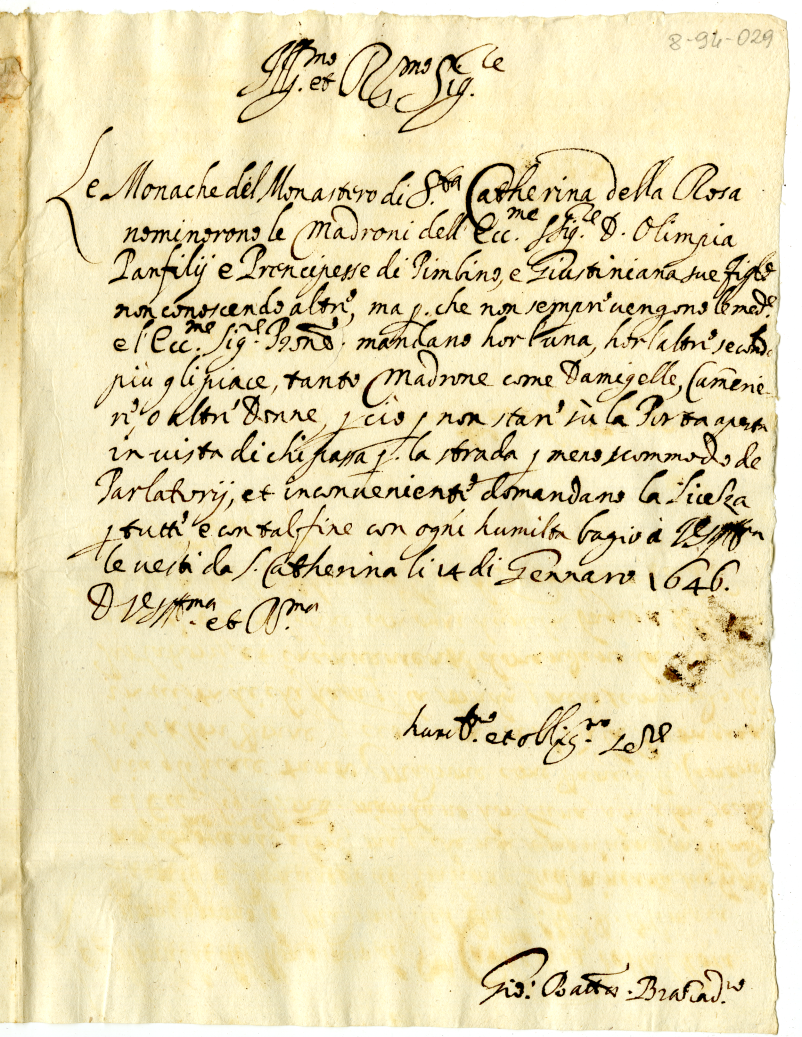 8-94-029
Ill.mo et R.mo Sig.re
Le Monache del Monastero di S.ta Catherina della Rosa
nominorono le Madroni dell' Ecc.me Sig.re D. Olimpia
Panfilij e Prencipesse di Pimbino, e Giustiniana sue figle
non conoscendo altre, ma p. che non sempre vengono le med.e
e l'Ecc.me Sig.re mandano hor l'una, hor l'altre second.o
più gli piace, tanto Madrone come Damegelle, Camerie-
re, o altre Donne, p ciò p non stare sù la Porta aperta
in vista di chi passa p. la strada p meno scommodo de
Parlatorij, et inconveniente domandano la liceza
p tutte, e con tal fine con ogni humiltà bagio à
le vesti da S. Catherina li 14 di Gennaro 1646.
D V S Ill.ma et R.ma
hum.mo et oblig.mo
Gio: Batta.